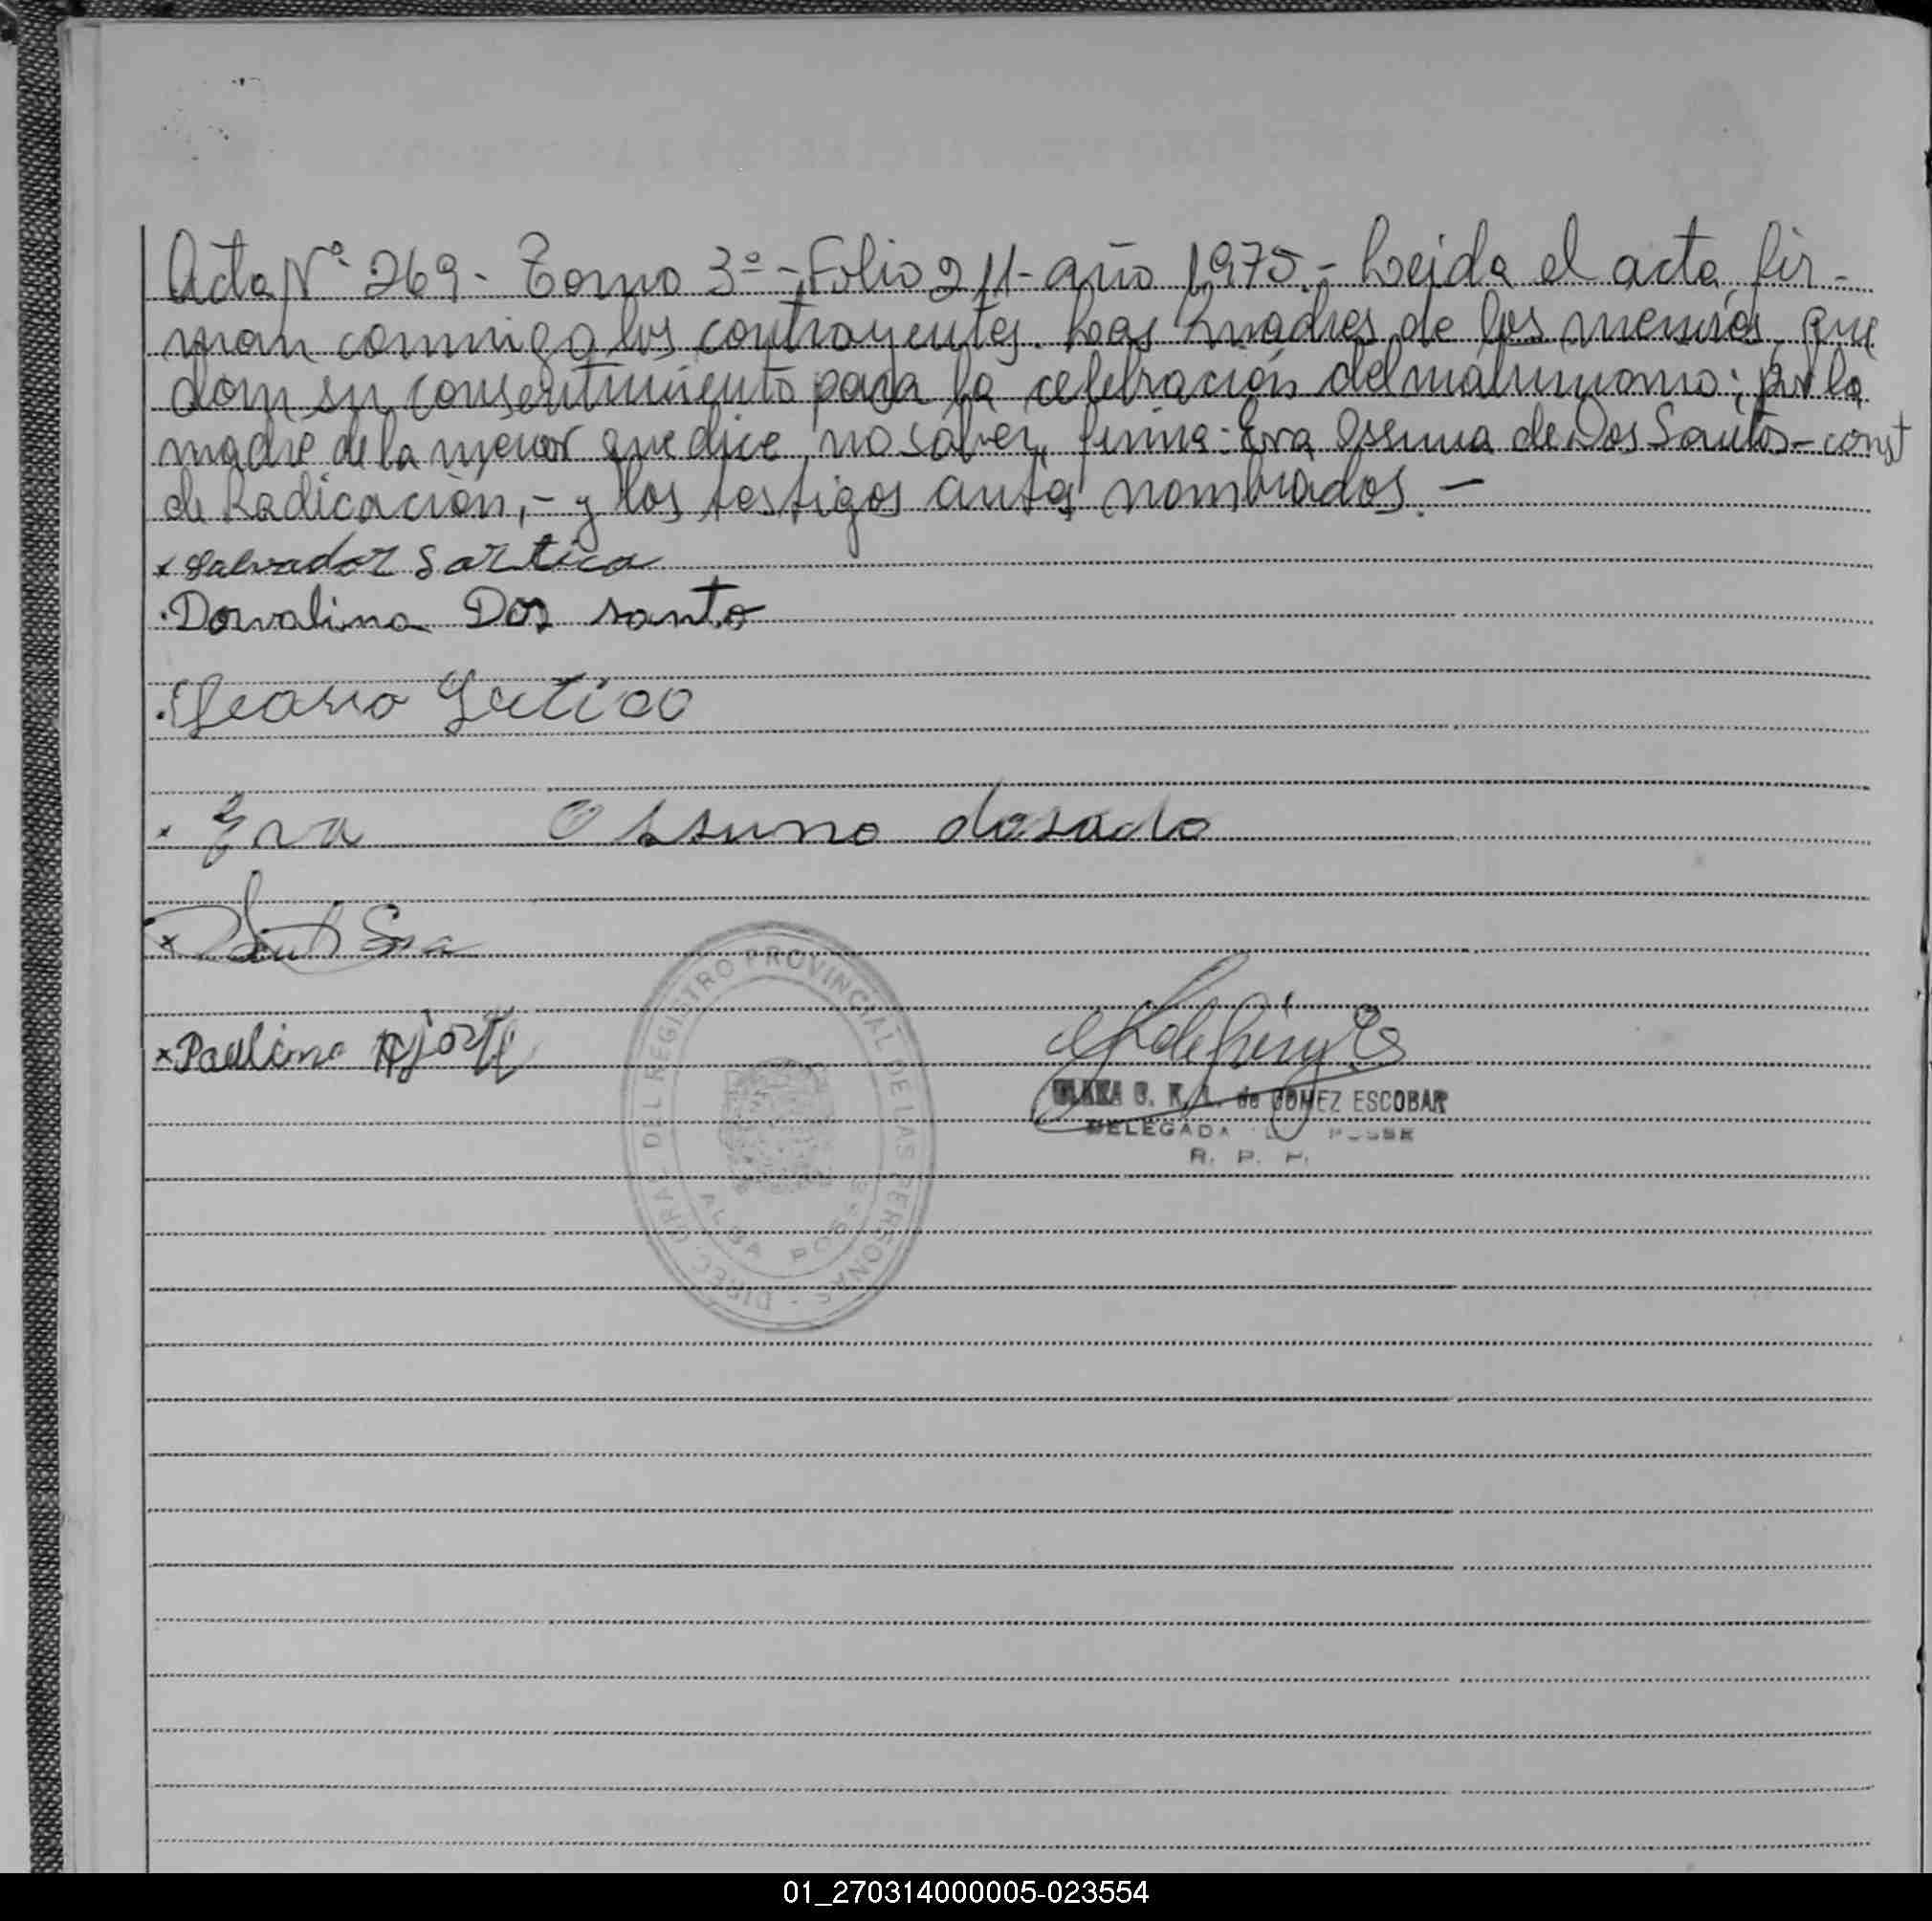 Acta Nº 269 - Tomo 3º - Folio 211 - año 1975. - Leida el acta, fir-
man conmigo los contrayentes. Las madres de los menores, que
dan su consentimiento para la celebración del matrimonio; por la
madre de la menor que dice no saber, firma: Eva Ossuna de Dos Santos - const
de Radicación, - y los testigos antes nombrados. -
x Salvador Sartica
. Dorvalina Dos santo
. Eva Ossuno dosado
x
x Paulino
DIREC. GRAL. DEL REGISTRO PROVINCIAL DE LAS PERSONAS -
ALBA POSSE
G. K. L. de GOMEZ ESCOBAR
DELEGADA POSSE
R. P. P.
01_270314000005-023554